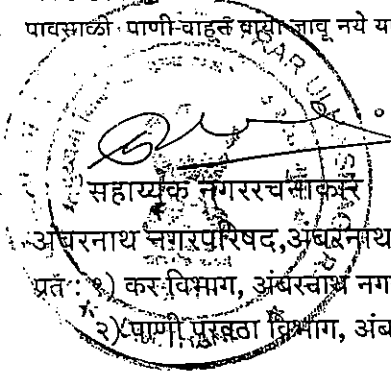 पावसाळी पाणी वाहून वाया जावू नये य
सहाय्यक नगररचनाकार
अंबरनाथ नगरपरिषद,अंबरनाथ
प्रत : १) कर विभाग, अंबरनाथ नग
२) पाणी पुरवठा विभाग, अंब